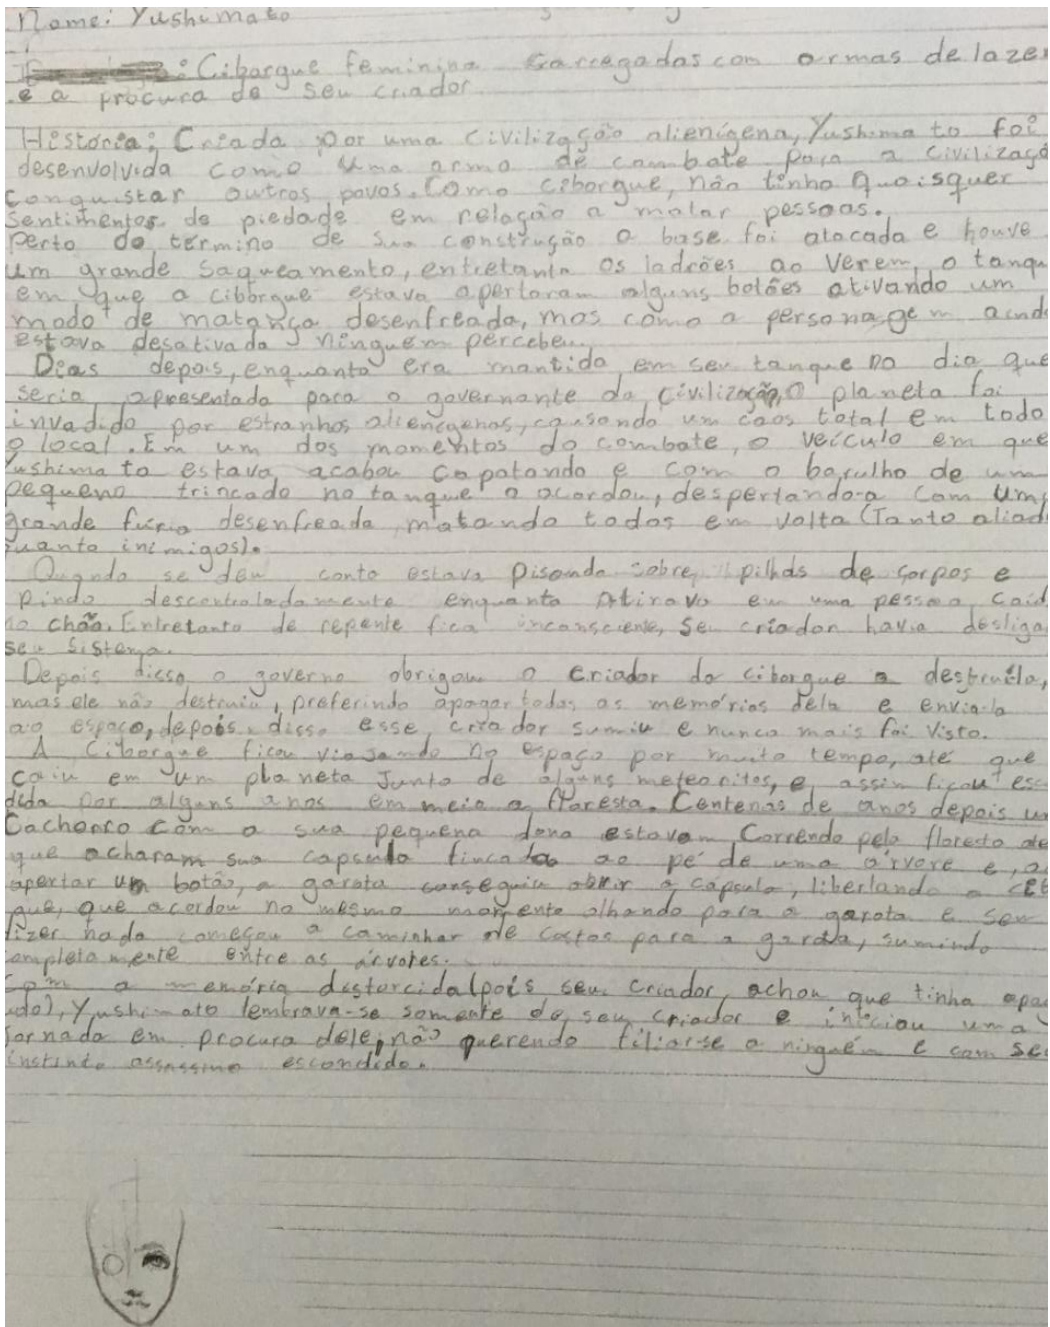 Name: Yushimato
: Ciborgue feminina carregadas com armas de lazer
e a procura de seu criador.
História: Criada por uma civilização alienígena, Yushimato foi
desenvolvida como uma arma de combate para a civilizaçã
conquistar outros povos. Como ciborgue, não tinha quaisquer
sentimentos de piedade em relação a matar pessoas.
Perto do término de sua construção a base foi atacada e houve
um grande saqueamento, entretanto os ladrões ao verem o tanqu
em que a ciborgue estava apertaram alguns botões ativando um
modo de matança desenfreada, mas como a personagem aind
estava desativada ninguém percebeu.
Dias depois, enquanto era mantida em seu tanque no dia que
seria apresentada para o governante da civilização, o planeta foi
invadido por estranhos alienígenas, causando um caos total em todo
o local. Em um dos momentos do combate, o veículo em que
Yushimato estava acabou capotando e com o barulho de um
pequeno trincado no tanque a acordou, despertando-a com uma
grande fúria desenfreada matando todos em volta (Tanto aliad
quanto inimigos).
Quando se deu conta estava pisando sobre pilhas de corpos e
rindo descontroladamente enquanto atirava em uma pessoa caíd
no chão. Entretanto de repente fica inconsciente, seu criador havia desliga
seu sistema.
Depois disso o governo obrigou o criador da ciborgue a destruíla,
mas ele não destruiu, preferindo apagar todas as memórias dela e envia-la
ao espaço, depois disso esse criador sumiu e nunca mais foi visto.
A Ciborgue ficou viajando no espaço por muito tempo, até que
caiu em um planeta junto de alguns meteoritos, e assim ficou esc
dida por alguns anos em meio a floresta. Centenas de anos depois um
Cachorro com a sua pequena dona estavam correndo pela floresta até
que acharam sua capsula fincada ao pé de uma árvore e, ao
apertar um botão, a garota conseguiu abrir a cápsula, libertando a cib
gue, que acordou no mesmo momento olhando para a garota e sem
dizer nada começou a caminhar de costas para a garota, sumindo
completamente entre as árvores.
Com a memória distorcida (pois seu criador achou que tinha apa
ado), Yushimato lembrava-se somente de seu criador e iniciou uma
jornada em procura dele, não querendo filiar-se a ninguém e com seu
instinto assassino escondido.